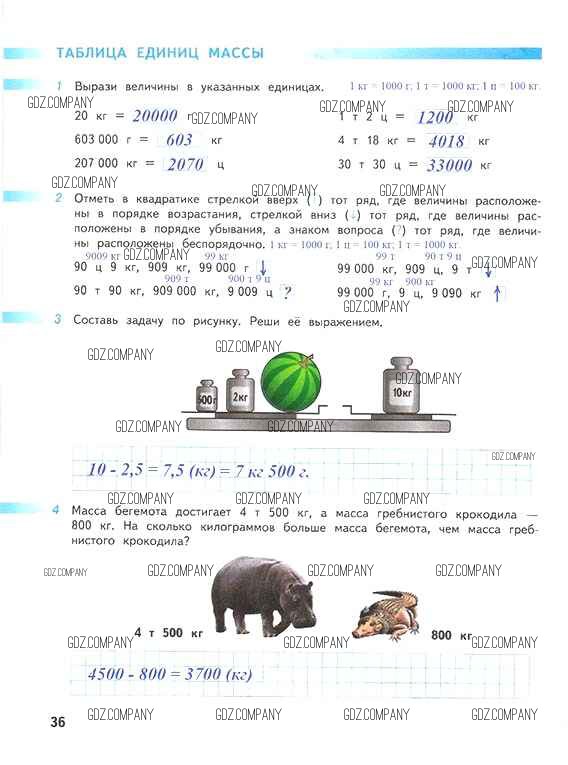 ТАБЛИЦА ЕДИНИЦ МАССЫ
1 Вырази величины в указанных единицах. 1 кг = 1000 г; 1 т = 1000 кг; 1 ц = 100 кг.
GDZ.COMPANY GDZ.COMPANY GDZ.COMPANY
20 кг = 20000 г GDZ.COMPANY 1 т 2 ц = 1200 кг
603 000 г = 603 кг 4 т 18 кг = 4018 кг
207 000 кг = 2070 ц 30 т 30 ц = 33000 кг
GDZ.COMPANY GDZ.COMPANY GDZ.COMPANY
2 Отметь в квадратике стрелкой вверх (↑) тот ряд, где величины расположе-
ны в порядке возрастания, стрелкой вниз (↓) тот ряд, где величины рас-
положены в порядке убывания, а знаком вопроса (?) тот ряд, где величи-
ны расположены беспорядочно. 1 кг = 1000 г; 1 ц = 100 кг; 1 т = 1000 кг.
9009 кг GDZ.COMPANY 99 кг GDZ.COMPANY 99 т 90 т 9 ц
90 ц 9 кг, 909 кг, 99 000 г ↓ 99 000 кг, 909 ц, 9 т ↓
909 т 900 т 9 ц 99 кг 900 кг
90 т 90 кг, 909 000 кг, 9 009 ц ? 99 000 г, 9 ц, 9 090 кг ↑
GDZ.COMPANY
3 Составь задачу по рисунку. Реши её выражением.
GDZ.COMPANY GDZ.COMPANY
GDZ.COMPANY
500 г 2 кг 10 кг
GDZ.COMPANY GDZ.COMPANY GDZ.COMPANY
GDZ.COMPANY
10 - 2,5 = 7,5 (кг) = 7 кг 500 г.
GDZ.COMPANY GDZ.COMPANY GDZ.COMPANY GDZ.COMPANY
4 Масса бегемота достигает 4 т 500 кг, а масса гребнистого крокодила —
800 кг. На сколько килограммов больше масса бегемота, чем масса греб-
нистого крокодила?
GDZ.COMPANY GDZ.COMPANY GDZ.COMPANY GDZ.COMPANY
4 т 500 кг 800 кг
GDZ.COMPANY GDZ.COMPANY GDZ.COMPANY GDZ.COMPANY
4500 - 800 = 3700 (кг)
36 GDZ.COMPANY GDZ.COMPANY GDZ.COMPANY GDZ.COMPANY